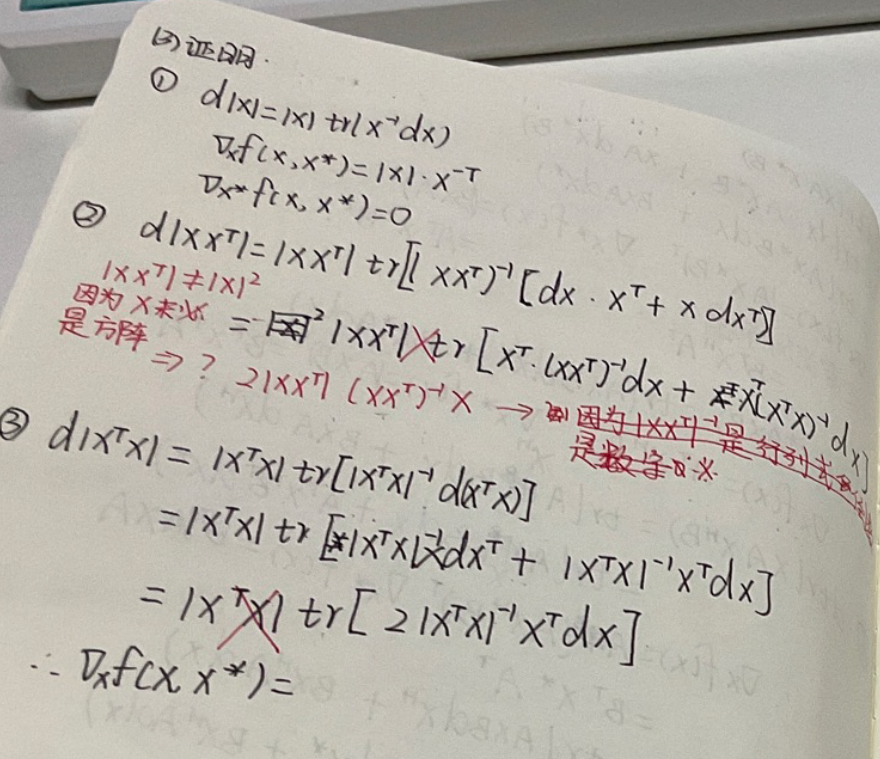 (3) 证明.
① d|X|=|X| tr(X⁻¹dX)
∇ₓf(X,X*)=|X|·X⁻ᵀ
∇ₓ*f(X,X*)=0
② d|XXᵀ|=|XXᵀ| tr[(XXᵀ)⁻¹[dX·Xᵀ+XdXᵀ]]
|XXᵀ|≠|X|²
因为X未必
是方阵
= ² |XXᵀ| tr[Xᵀ·(XXᵀ)⁻¹dX + Xᵀ(XᵀX)⁻¹dX]
⇒ ? 2|XXᵀ| (XXᵀ)⁻¹X → 因为|XXᵀ|⁻¹是行列式
是数字
③ d|XᵀX| = |XᵀX| tr[|XᵀX|⁻¹d(XᵀX)]
= |XᵀX| tr[|XᵀX|⁻¹XdXᵀ + |XᵀX|⁻¹XᵀdX]
= |XᵀX| tr[2|XᵀX|⁻¹XᵀdX]
∴ ∇ₓf(X,X*)=